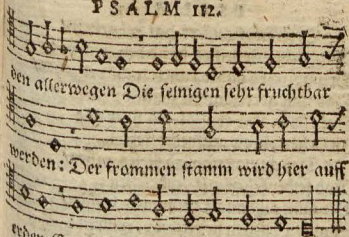 PSALM 112.
den allerwegen Die seinigen sehr fruchtbar
werden: Der frommen stamm wird hier auff
erden